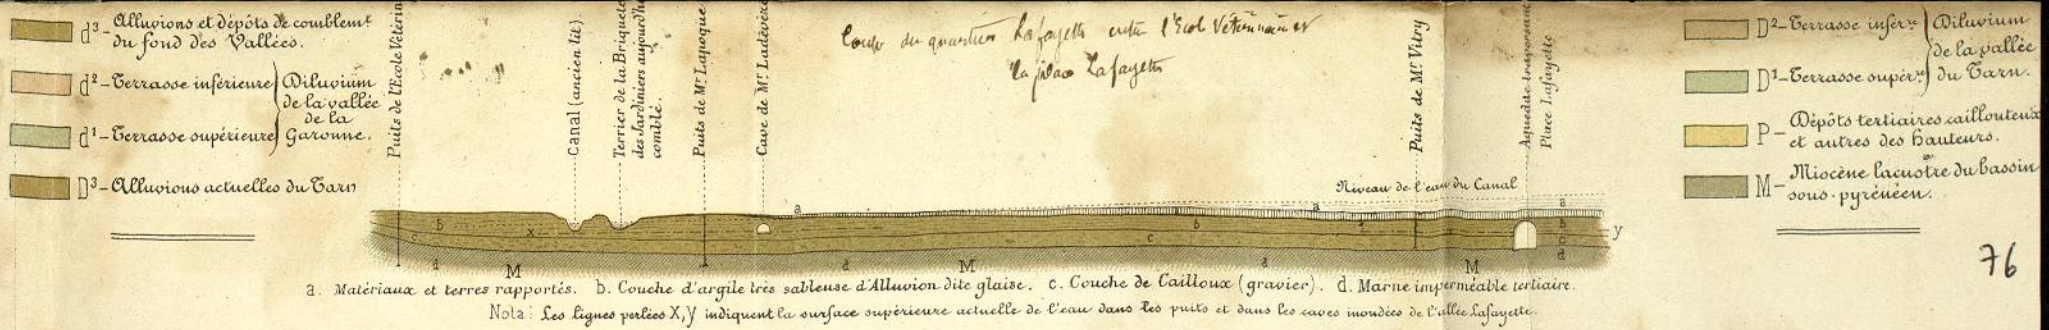 d³-Alluvions et dépôts de comblemt
du fond des Vallées.
d²-Terrasse inférieure
d¹-Terrasse supérieure
Diluvium
de la vallée
de la
Garonne.
D³-Alluvions actuelles du Tarn
Puits de l'Ecole Vétérin
Canal (ancien lit).
Terrier de la Briquete
des Jardiniers aujourd'h
comblé.
Puits de Mr Lapoque
Cave de Mr Ladévèze
Coupe du quartier Lafayette entre l'Ecole Vétérinaire et
la place Lafayette
Puits de Mr Vitry
Aqueduc traversant
Place Lafayette
Niveau de l'eau du Canal
D²-Terrasse inférre
D¹-Terrasse supérre
Diluvium
de la vallée
du Tarn.
P-Dépôts tertiaires caillouteux
et autres des hauteurs.
M-Miocène lacustre du bassin
sous-pyrénéen.
a a a
b x b b
c c c y
d d d d
M M M
76
a. Matériaux et terres rapportés. b. Couche d'argile très sableuse d'Alluvion dite glaise. c. Couche de Cailloux (gravier). d. Marne imperméable tertiaire.
Nota: Les lignes perlées X, y indiquent la surface supérieure actuelle de l'eau dans les puits et dans les caves inondées de l'allée Lafayette.